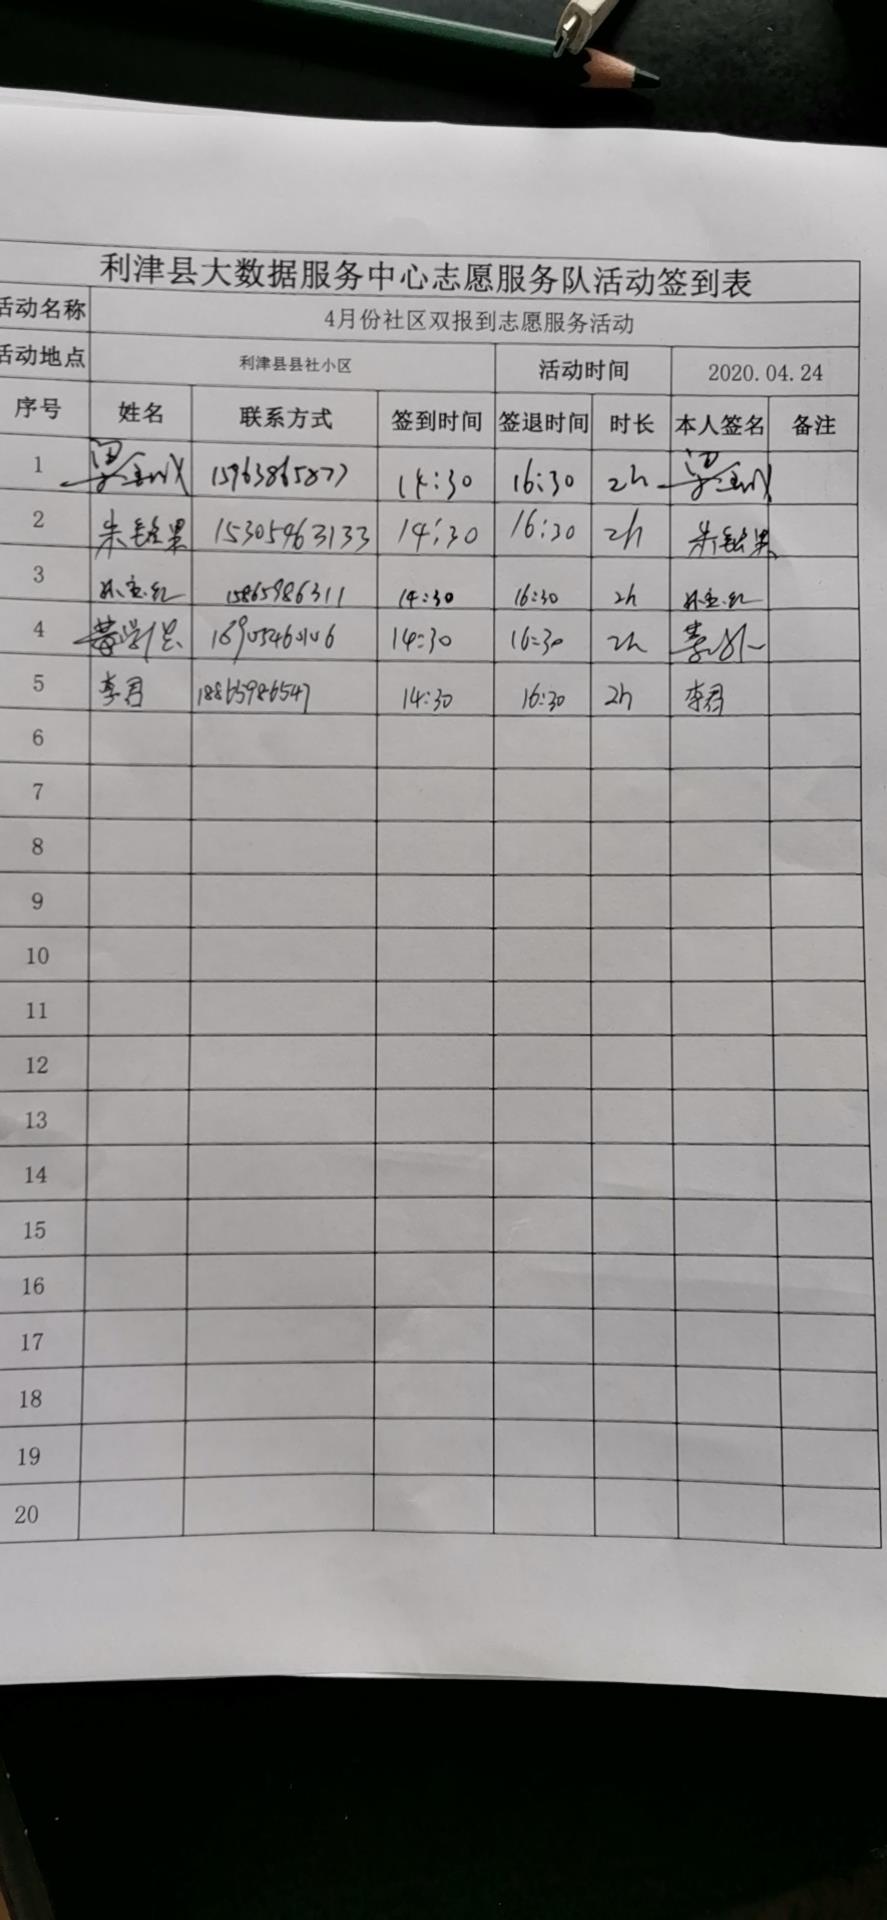 利津县大数据服务中心志愿服务队活动签到表
活动名称 4月份社区双报到志愿服务活动
活动地点 利津县县社小区 活动时间 2020.04.24
序号 姓名 联系方式 签到时间 签退时间 时长 本人签名 备注
1 15963865877 14:30 16:30 2h
2 朱 15305463133 14:30 16:30 2h 朱
3 15865986311 14:30 16:30 2h
4 14:30 16:30 2h
5 李君 18865986547 14:30 16:30 2h 李君
6
7
8
9
10
11
12
13
14
15
16
17
18
19
20